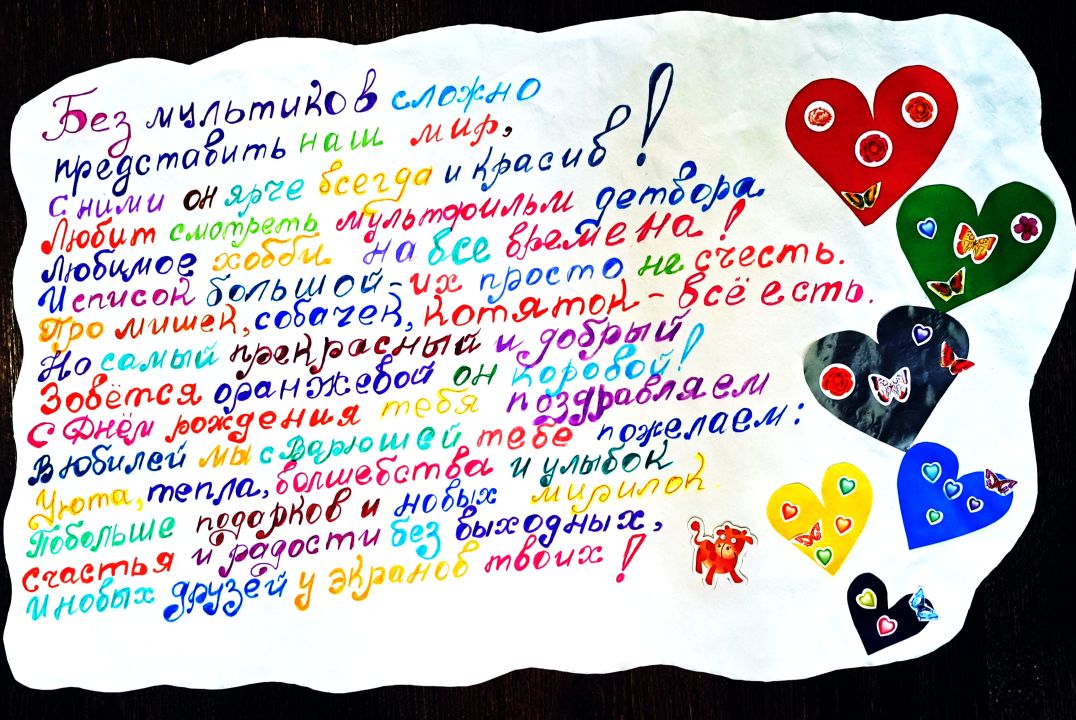 Без мультиков сложно
представить наш мир,
С ними он ярче всегда и красив!
Любит смотреть мультфильм детвора
Любимое хобби на все времена!
И список большой - их просто не счесть.
Про мишек, собачек, котяток - всё есть.
Но самый прекрасный и добрый
Зовётся оранжевой он коровой!
С Днём рождения тебя поздравляем
В юбилей мы с Варюшей тебе пожелаем:
Уюта, тепла, волшебства и улыбок
Побольше подарков и новых мирилок
счастья и радости без выходных,
И новых друзей у экранов твоих!